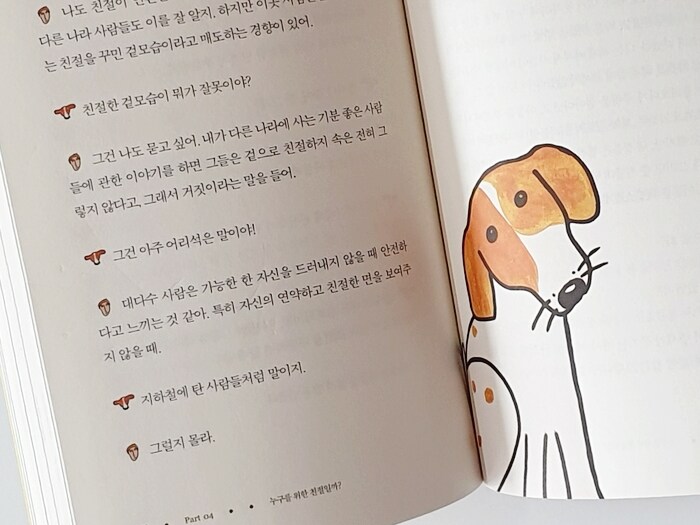 나도 친절이
다른 나라 사람들도 이를 잘 알지. 하지만 이곳
는 친절을 꾸민 겉모습이라고 매도하는 경향이 있어.
친절한 겉모습이 뭐가 잘못이야?
그건 나도 묻고 싶어. 내가 다른 나라에 사는 기분 좋은 사람
들에 관한 이야기를 하면 그들은 겉으로 친절하지 속은 전혀 그
렇지 않다고, 그래서 거짓이라는 말을 들어.
그건 아주 어리석은 말이야!
대다수 사람은 가능한 한 자신을 드러내지 않을 때 안전하
다고 느끼는 것 같아. 특히 자신의 연약하고 친절한 면을 보여주
지 않을 때.
지하철에 탄 사람들처럼 말이지.
그럴지 몰라.
Part 04 • • 누구를 위한 친절일까?